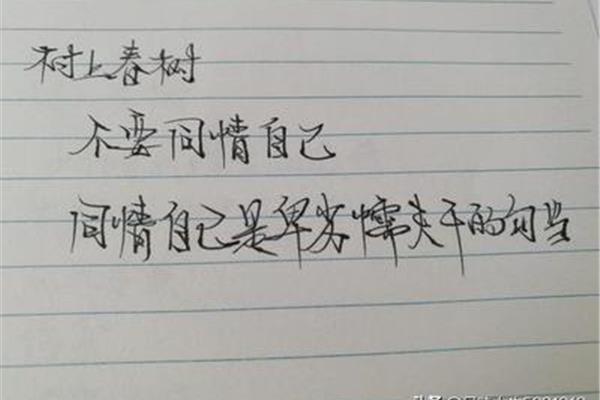 村上春树
不要同情自己
同情自己是卑劣懦夫干的勾当